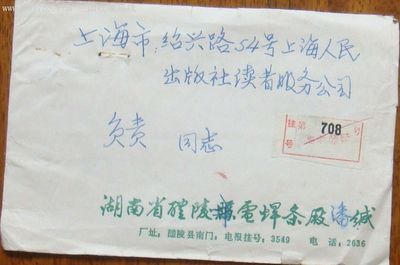 上海市,绍兴路54号上海人民
出版社读者服务公司
负责 同志
挂第 708 号
号
湖南省醴陵電焊条厰 潘缄
厂址:醴陵县南门,电报挂号:3549 电话:2636